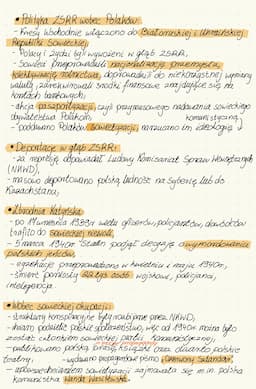 • Polityka ZSRR wobec Polaków
- Kresy Wschodnie włączono do Białoruskiej i Ukraińskiej
Republiki Sowieckiej,
- Polacy i Żydzi byli wywożeni w głąb ZSRR,
- Sowieci przeprowadzili nacjonalizację przemysłu,
kolektywizację rolnictwa, doprowadzili do niekorzystnej wymiany
waluty i zarekwirowali środki finansowe znajdujące się na
kontach bankowych,
- akcja paszportyzacji, czyli przymusowego nadawania sowieckiego
obywatelstwa Polakom,
- poddawano Polaków sowietyzacji, narzucano im ideologię komunistyczną,
• Deportacje w głąb ZSRR:
- za represje odpowiadał Ludowy Komisariat Spraw Wewnętrznych
(NKWD),
- masowo deportowano polską ludność na Syberię lub do
Kazachstanu,
• Zbrodnia Katyńska
- po 17 września 1939r. wielu oficerów, policjantów, dowódców
trafiło do sowieckiej niewoli,
- 5 marca 1940r. Stalin podjął decyzję o wymordowaniu
polskich jeńców,
- egzekucje przeprowadzono w kwietniu i maju 1940r.,
- śmierć poniosły 22 tys. osób: wojskowi, policjanci,
inteligencja.
• Wobec sowieckiej okupacji:
- struktury konspiracyjne były rozbijane przez NKWD,
- podzielić polskie społeczeństwo, więc od 1940r. można było
zostać członkiem sowieckiej partii komunistycznej,
- publikowano polską książki oraz
teatry, - wydawano propagandowe pismo „Czerwony Sztandar”,
- upowszechnianiem sowietyzacji zajmowała się m.in. polska
komunistka Wanda Wasilewska.